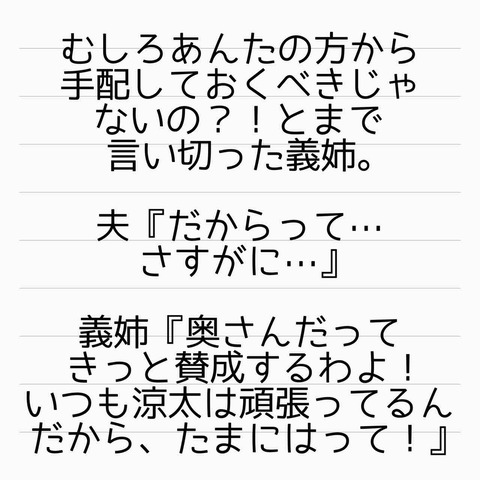 むしろあんたの方から
手配しておくべきじゃ
ないの？！とまで
言い切った義姉。
夫『だからって…
さすがに…』
義姉『奥さんだって
きっと賛成するわよ！
いつも涼太は頑張ってるん
だから、たまにはって！』